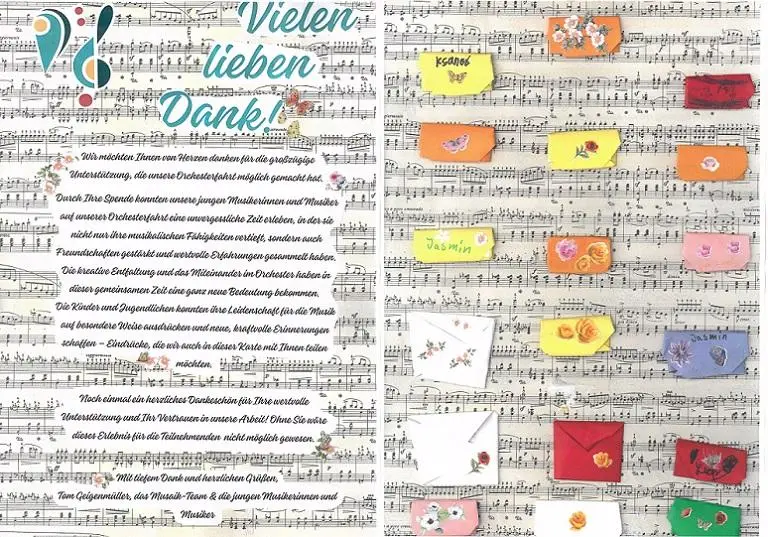 Vielen
lieben
Dank!
Wir möchten Ihnen von Herzen danken für die großzügige
Unterstützung, die unsere Orchesterfahrt möglich gemacht hat.
Durch Ihre Spende konnten unsere jungen Musikerinnen und Musiker
auf unserer Orchesterfahrt eine unvergessliche Zeit erleben, in der sie
nicht nur ihre musikalischen Fähigkeiten vertieft, sondern auch
Freundschaften gestärkt und wertvolle Erfahrungen gesammelt haben.
Die kreative Entfaltung und das Miteinander im Orchester haben in
dieser gemeinsamen Zeit eine ganz neue Bedeutung bekommen.
Die Kinder und Jugendlichen konnten ihre Leidenschaft für die Musik
auf besondere Weise ausdrücken und neue, kraftvolle Erinnerungen
schaffen – Eindrücke, die wir auch in dieser Karte mit Ihnen teilen
möchten.
Noch einmal ein herzliches Dankeschön für Ihre wertvolle
Unterstützung und Ihr Vertrauen in unsere Arbeit! Ohne Sie wäre
dieses Erlebnis für die Teilnehmenden nicht möglich gewesen.
Mit tiefem Dank und herzlichen Grüßen,
Tom Geigenmüller, das Musaik-Team & die jungen Musikerinnen und
Musiker
Ksanoš
Jasmin
Jasmin